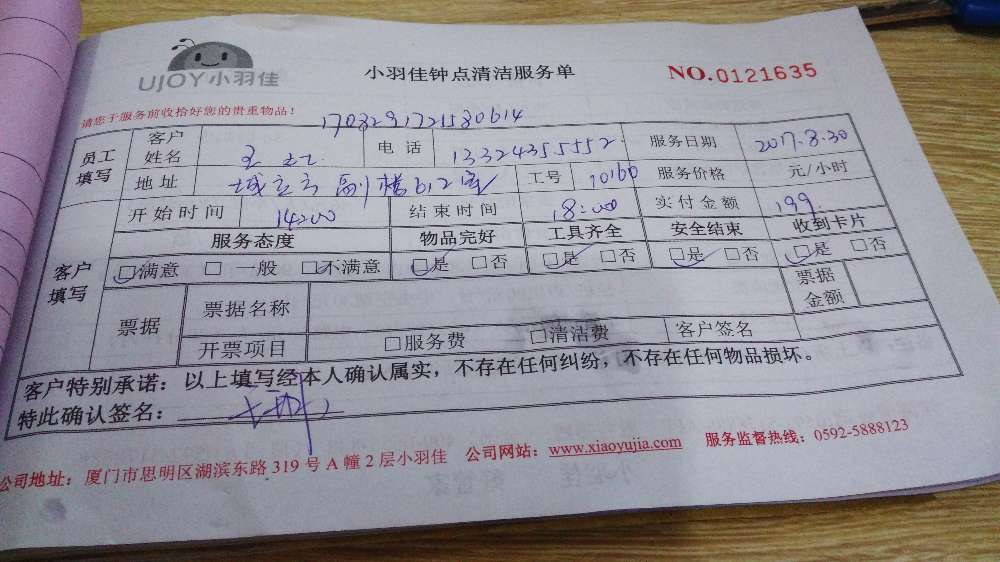 UJOY小羽佳
小羽佳钟点清洁服务单
NO.0121635
请您于服务前收拾好您的贵重物品！
员工填写 客户姓名 电话 13324355552 服务日期 2017.8.30
地址 副楼612室 工号 10160 服务价格 元/小时
客户填写 开始时间 14:00 结束时间 18:00 实付金额 199
服务态度 物品完好 工具齐全 安全结束 收到卡片
□满意 □一般 □不满意 □是 □否 □是 □否 □是 □否 □是 □否
票据 票据名称 票据金额
开票项目 □服务费 □清洁费 客户签名
客户特别承诺：以上填写经本人确认属实，不存在任何纠纷，不存在任何物品损坏。
特此确认签名：
公司地址：厦门市思明区湖滨东路319号A幢2层小羽佳 公司网站：www.xiaoyujia.com 服务监督热线：0592-5888123